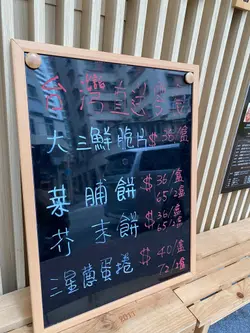 台灣
大三鮮脆片 $36/盒
菜脯餅 $36/盒
65/2盒
芥末餅 $36/盒
65/2盒
三星蔥蛋捲 $40/盒
72/2盒
2017